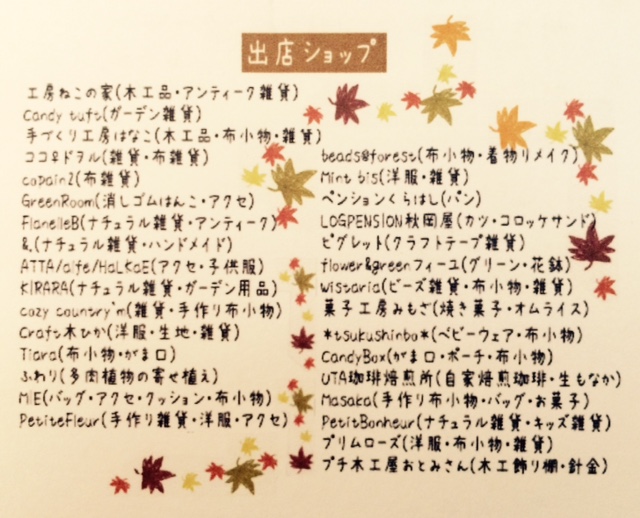 出店ショップ
工房ねこの家(木工品・アンティーク雑貨)
Candy tuft(ガーデン雑貨)
手づくり工房はなこ(木工品・布小物・雑貨)
ココ♀ドヲル(雑貨・布雑貨)
copain2(布雑貨)
GreenRoom(消しゴムはんこ・アクセ)
FlanelleB(ナチュラル雑貨・アンティーク)
&.(ナチュラル雑貨・ハンドメイド)
ATTA/alfe/HaLKaE(アクセ・子供服)
KIRARA(ナチュラル雑貨・ガーデン用品)
cozy country'm(雑貨・手作り布小物)
Craft木ひか(洋服・生地・雑貨)
Tiara(布小物・がま口)
ふわり(多肉植物の寄せ植え)
MIE(バッグ・アクセ・クッション・布小物)
PetiteFleur(手作り雑貨・洋服・アクセ)
beads@forest(布小物・着物リメイク)
Mint bis(洋服・雑貨)
ペンションくらはし(パン)
LOGPENSION秋岡屋(カツ・コロッケサンド)
ピグレット(クラフトテープ雑貨)
flower&greenフィーユ(グリーン・花鉢)
wistaria(ビーズ雑貨・布小物・雑貨)
菓子工房みもざ(焼き菓子・オムライス)
*tsukushinbo*(ベビーウェア・布小物)
CandyBox(がま口・ポーチ・布小物)
UTA珈琲焙煎所(自家焙煎珈琲・生もなか)
Masaka(手作り布小物・バッグ・お菓子)
PetitBonheur(ナチュラル雑貨・キッズ雑貨)
プリムローズ(洋服・布小物・雑貨)
プチ木工屋おとみさん(木工飾り棚・針金)